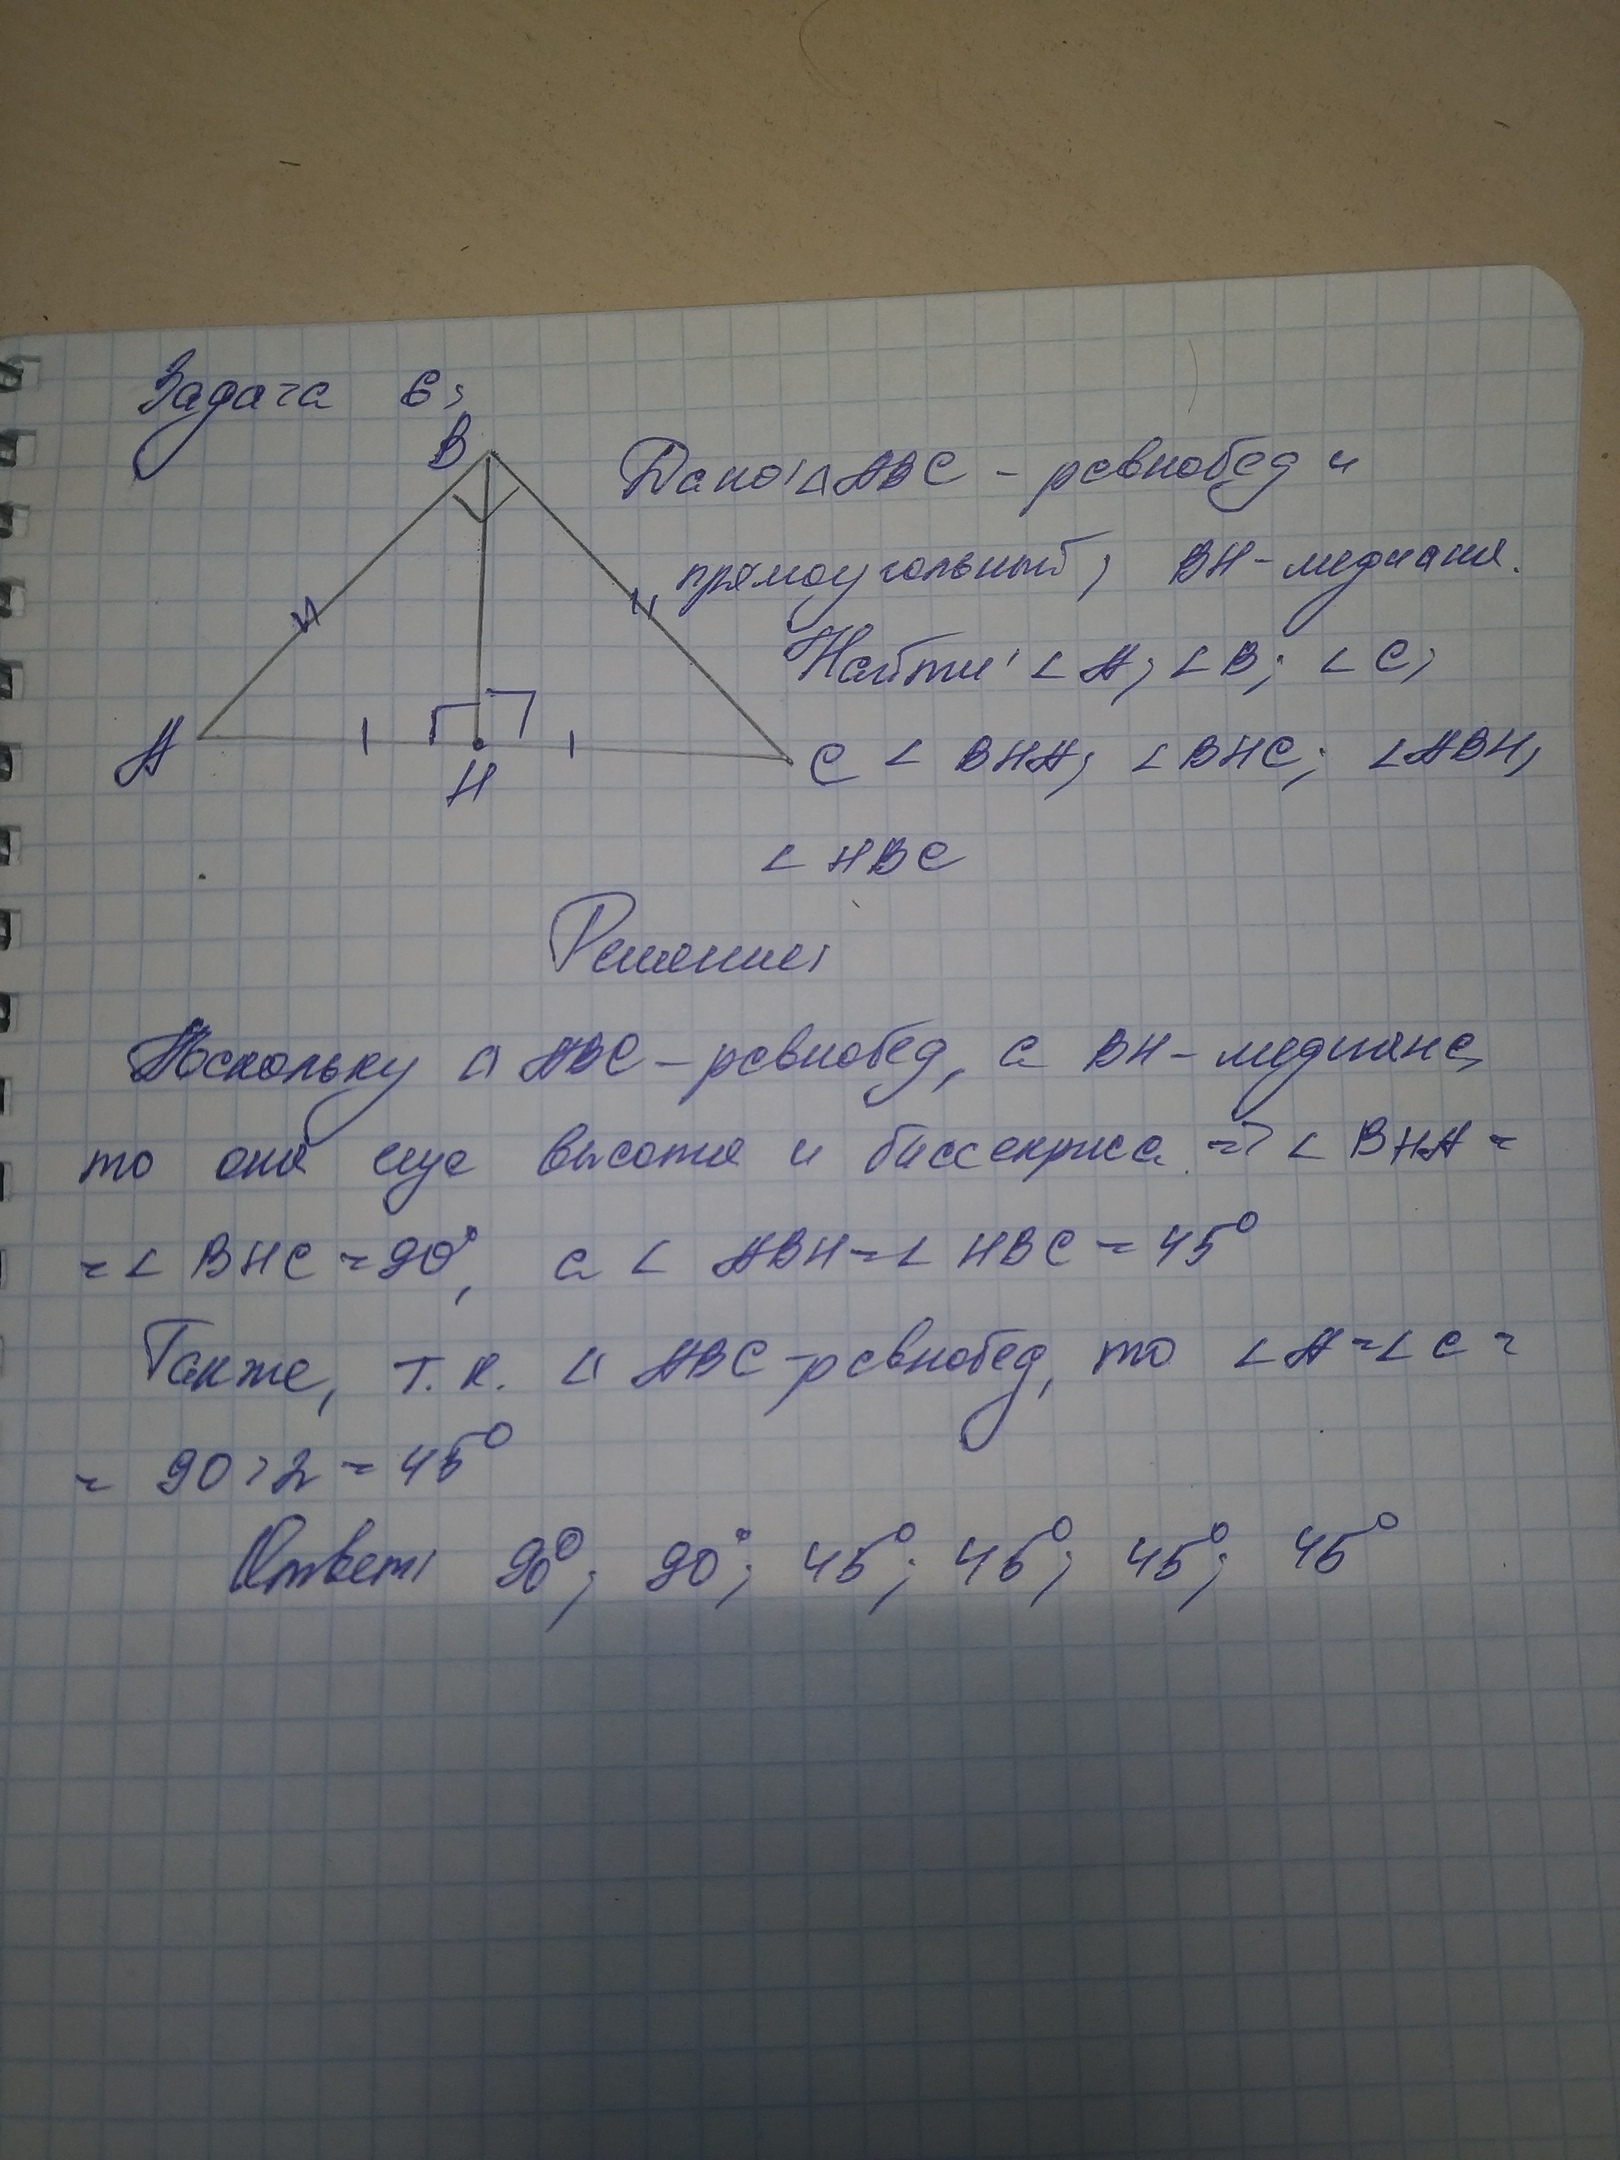 Задача 6:
B
Дано: △ ABC - равнобед и
прямоугольный; BH - медиана.
Найти: ∠A; ∠B; ∠C;
A
H
C
∠ BHA; ∠BHC; ∠ABH;
∠ HBC
Решение:
Поскольку △ ABC - равнобед, а BH - медиана,
то она еще высота и биссектриса => ∠ BHA =
= ∠ BHC = 90°, а ∠ ABH = ∠ HBC = 45°
Также, т.к. △ ABC - равнобед, то ∠A = ∠C =
= 90 : 2 = 45°
Ответ: 90°; 90°; 45°; 45°; 45°; 45°